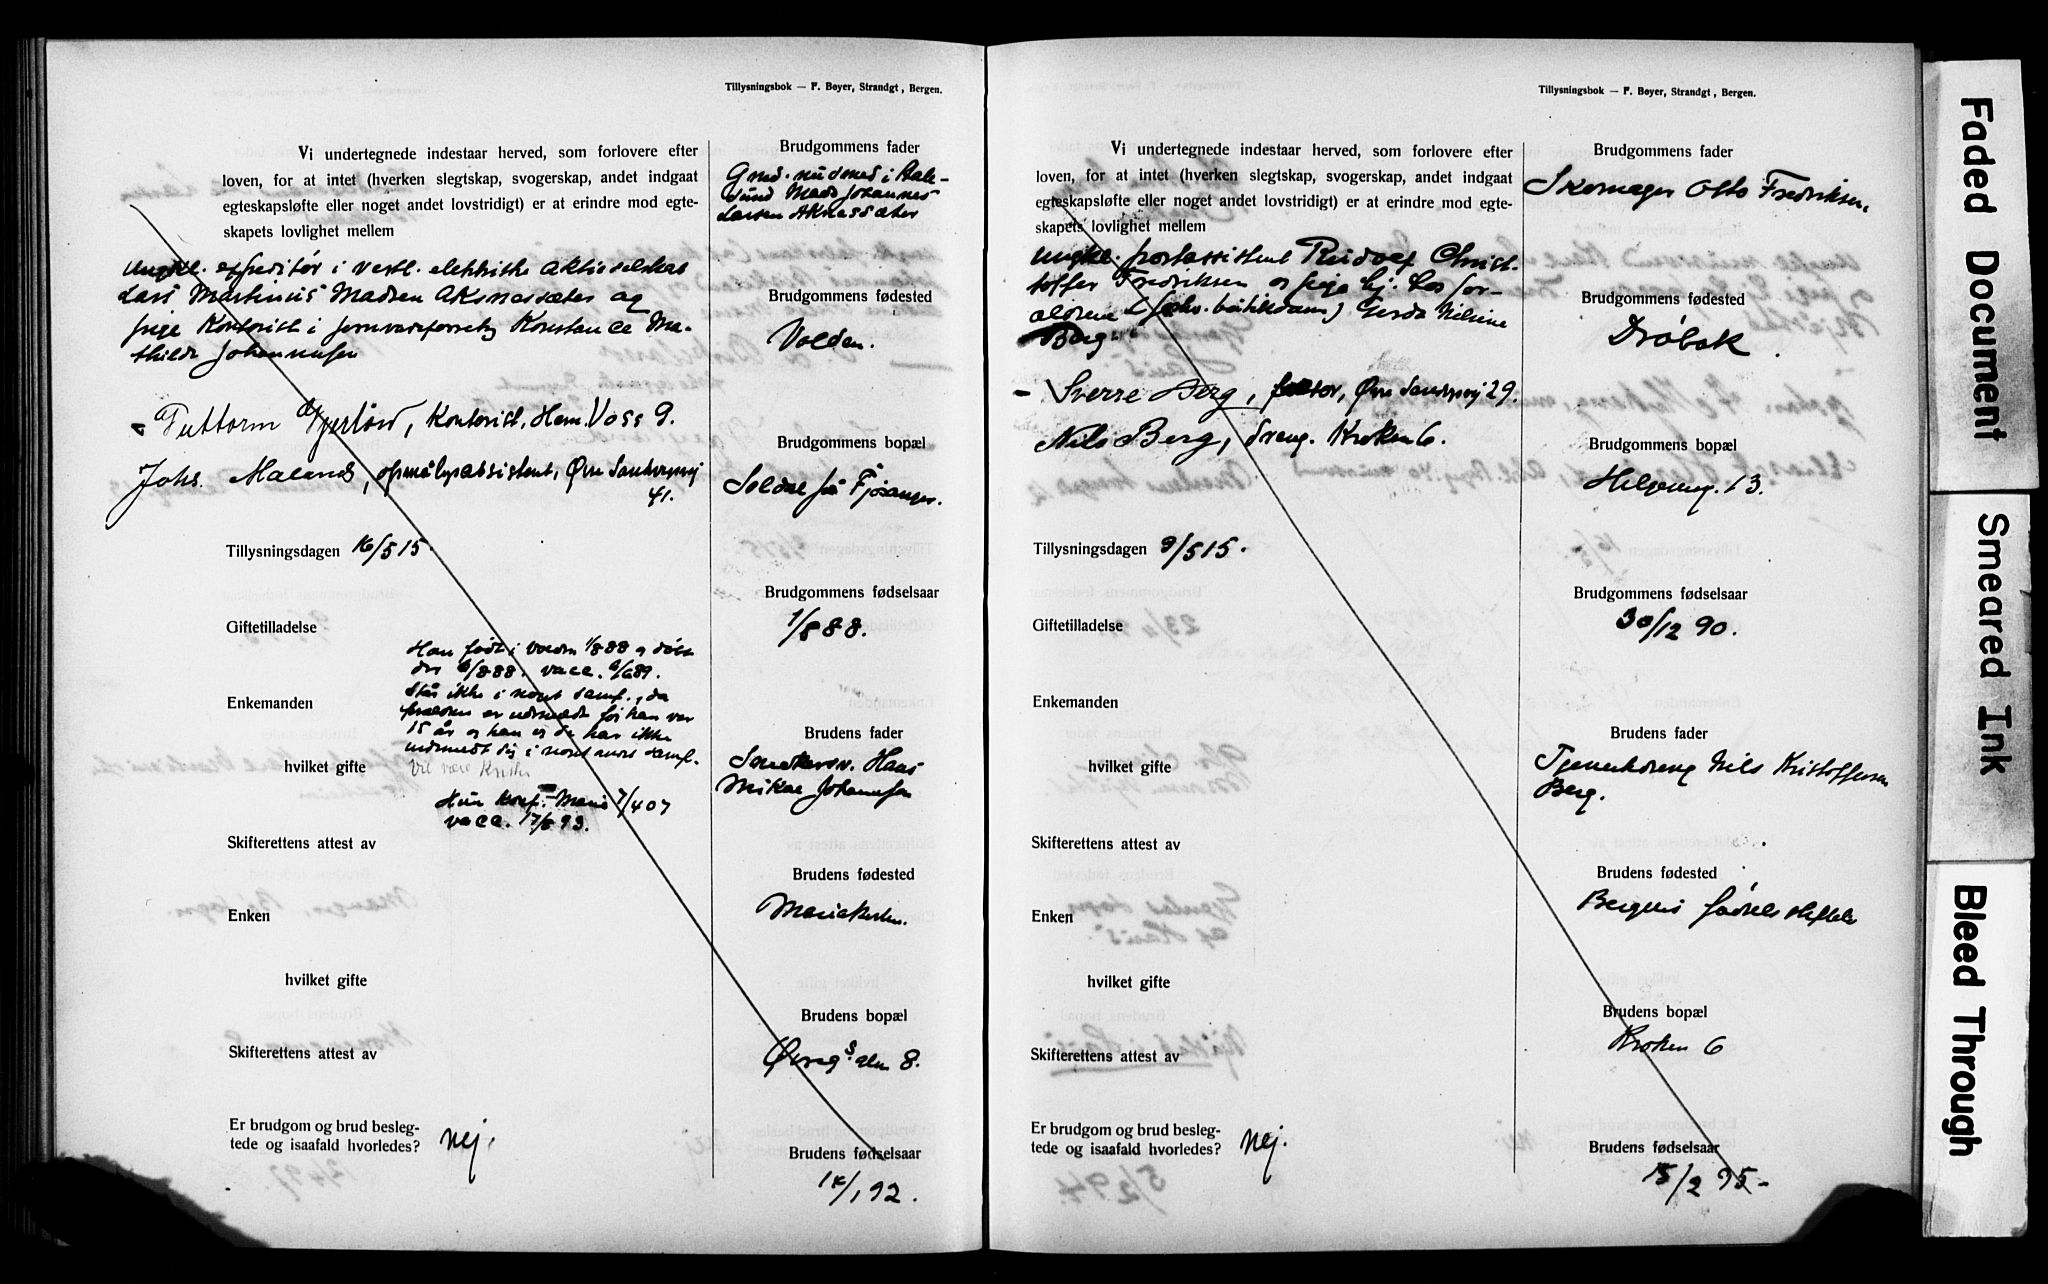 Tillysningsbok — F. Bøyer, Strandgt, Bergen.
Vi undertegnede indestaar herved, som forlovere efter
loven, for at intet (hverken slegtskap, svogerskap, andet indgaat
egteskapsløfte eller noget andet lovstridigt) er at erindre mod egte-
skapets lovlighet mellem
ungkl. expeditør i vestl. elektriske aktieselskab
Lars Martinus Madsen Aksnessæter og
pige Kontorist i jernvareforretn Konstance Ma-
thilde Johannesen
Guttorm Gjerløw, Kontorist, Hem. Voss 9.
Johs. Maland, opmålingsassistent, Øvre Sandvigsvej
41.
Tillysningsdagen 16/5 15.
Giftetilladelse
Han født i Volden 1/8 88 og døbt
der /8 88. vacc. 9/6 89.
Står ikke i noget samf., da
forældrene er udmeldt før han var
15 år og han er de har ikke
indmeldt sig i noget andet samf.
Vil være Kristen
Enkemanden
hvilket gifte
Hun konf. Marie 7/4 07
vacc. 17/8 93.
Skifterettens attest av
Enken
hvilket gifte
Skifterettens attest av
Er brudgom og brud besleg-
tede og isaafald hvorledes? Nej.
Brudgommens fader
Gmd. i Aale-
sund Mads Johannes
Larsen Aknessæter
Brudgommens fødested
Volden.
Brudgommens bopæl
Soldal på Fjøsanger.
Brudgommens fødselsaar
1/8 88.
Brudens fader
Snekkersv. Hans
Mikal Johannesen
Brudens fødested
Mariakirken.
Brudens bopæl
Øvreg.s alm 8.
Brudens fødselsaar
14/1 92.
Tillysningsbok — F. Bøyer, Strandgt, Bergen.
Vi undertegnede indestaar herved, som forlovere efter
loven, for at intet (hverken slegtskap, svogerskap, andet indgaat
egteskapsløfte eller noget andet lovstridigt) er at erindre mod egte-
skapets lovlighet mellem
ungkl. postassistent Rudolf Christ-
toffer Fredriksen og pige hj. hos for-
ældrene (forhv. butikdame) Gerda Nilsine
Berg
Sverre Berg, faktor, Øvre Sandvigsvej 29.
Nils Berg, dreng. Kroken 6.
Tillysningsdagen 9/5 15.
Giftetilladelse
Enkemanden
hvilket gifte
Skifterettens attest av
Enken
hvilket gifte
Skifterettens attest av
Er brudgom og brud besleg-
tede og isaafald hvorledes? Nej.
Brudgommens fader
Skomager Otto Fredriksen.
Brudgommens fødested
Drøbak.
Brudgommens bopæl
Helgeseng. 13.
Brudgommens fødselsaar
30/12 90.
Brudens fader
Tjenerdreng Nils Kristoffersen
Berg.
Brudens fødested
Bergens fødselsstiftelse
Brudens bopæl
Kroken 6
Brudens fødselsaar
15/2 95.
Faded Document
Smeared Ink
Bleed Through